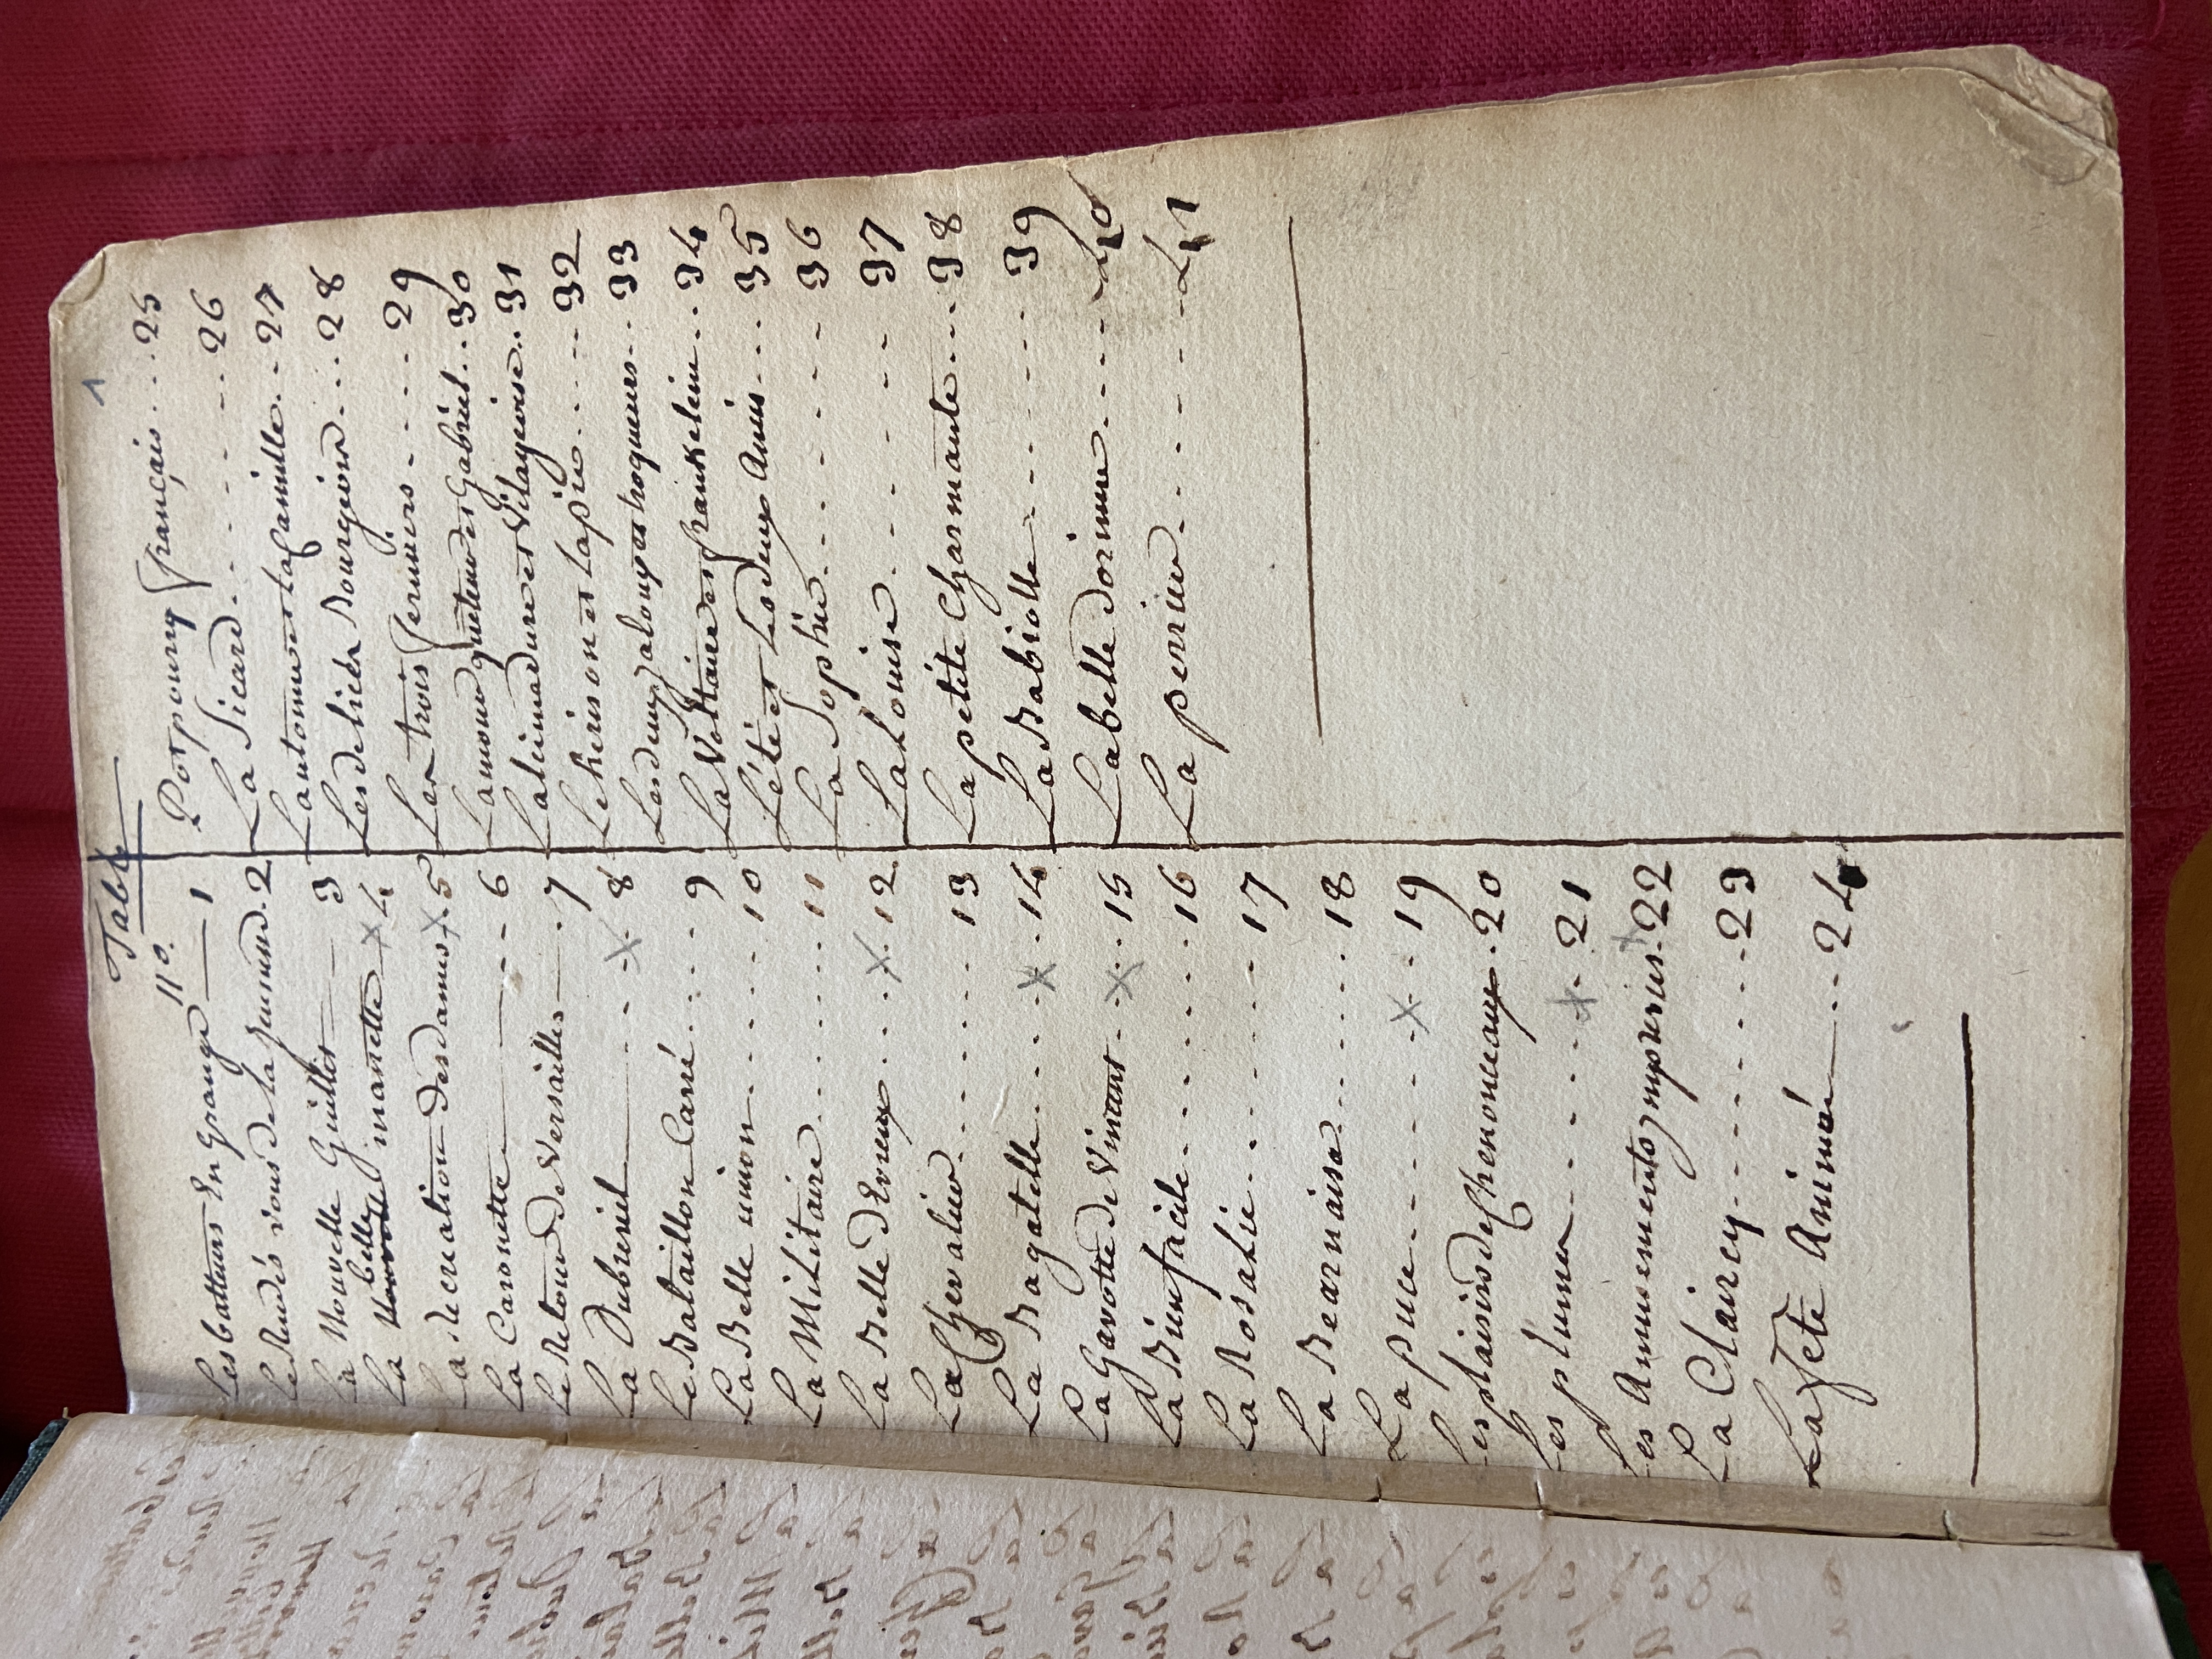 Table
1
No.
Les batteurs En grange 1
Le Rendés vous de la 2
La Nouvelle Guillot 3
La belle manette 4
La recreation des dames 5
La Caronette 6
Le Retour de Versailles 7
La Dubreuil 8
Le Bataillon Carré 9
La Belle union 10
La Militaire 11
La Belle d'Evreux 12
La Chevalier 13
La Bagatelle 14
La Gavotte de Vincent 15
La Bien facile 16
La Rosalie 17
La Bearnaise 18
La puce 19
Les plaisirs de Chenonceaux 20
Les plumes 21
Les Amusements 22
La Claircy 23
La Fete Animée 24
Potpoury français 25
La Sicard 26
L'automne et la famille 27
Les delices Bourgeois 28
Les trois fermiers 29
L'amour queteur et Gabriel 30
La et Vilageoise 31
Le hérison et la pie 32
Les deux jaloux et troqueurs 33
La Voltaire et frankelin 34
L'été et Les deux Amis 35
La Sophie 36
La Louise 37
La petite Charmante 38
La Babiolle 39
La belle Dorinne 40
La perrier 41